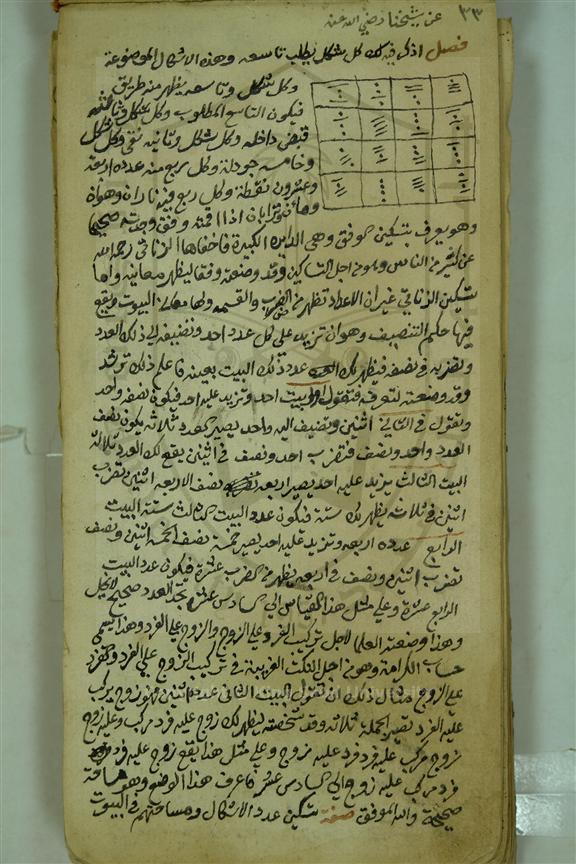 ٣٣ عن شيخنا رضي الله عنه
فصل اذكر فيه لك كل شكل يطلب تاسعه وهذه الاشكال الموضوعة
وكل شكل وتاسعه يظهر منه طريق
فيكون التاسع المطلوب وكل شكل
قبض داخله وكل شكل وثانيه نقي وكل شكل
وخامسه جودلة وكل ربع منه عدده اربعة
وعشرون نقطة وكل ربع فيه ناران وهواه
وماآن وترابان اذا اقمته وفق وجدته صحيحا
وهو يعرف بتسكين الموفق وهي الدايره الكبيرة فاخفاها الزناتي رحمه الله
عن كثير من الناس وهو من اجل التساكين وقد وضعته وفقا ليظهر معانيه واما
تسكين الزناتي غير ان الاعداد تظهر من الضرب والقسمه ولها البيوت ويقع
فيها حكم التنصيف وهو ان تزيد على كل عدد احد وتضيفه الى ذلك العدد
وتضربه في نصفه فيظهر لك عدد ذلك البيت بعينه فاعلم ذلك ترشد
وقد وضعته لتعرف فتقول البيت احد وتزيد عليه احد فيكون نصفه واحد
وتقول في الثاني اثنين وتضيف اليه واحد يصير العدد ثلاثه يكون نصف
العدد واحد ونصف فتضرب احد ونصف في اثنين يقع لك العدد ثلاثة
البيت الثالث يزيد عليه احد يصير اربعه نصف الاربعه اثنين وتضرب
اثنين في ثلاثه يظهر لك ستة فيكون عدد البيت الثالث ستة البيت
الرابع عدده اربعه وتزيد عليه احد يصير خمسة نصف الخمسة اثنين ونصف
تضرب اثنين ونصف في اربعه يظهر من الضرب عشرة فيكون عدد البيت
الرابع عشرة وعلى مثل هذا القياس الى السادس عشر تجد العدد صحيح لا يخل
وهذا وضعته العلما لاجل تركيب الفرد على الزوج والزوج على الفرد وهذا يسمى
حساب الكرامة وهو من اجل النكت الغريبة في تركيب الزوج على الفرد والفرد
على الزوج مثال ذلك ان تقول البيت الثاني عدده اثنين فهو زوج يركب
عليه الفرد تصير الجملة ثلاثه وقد شخصته يظهر لك زوج عليه فرد مركب وعليه زوج
زوج مركب عليه فرد فرد عليه زوج وعلى مثل هذا يقع زوج عليه فرد
فرد مركب عليه زوج الى السادس عشر فاعرف هذا الوضع وهو
صحيحة والله الموفق صفة تسكين عدد الاشكال ومساحتهم في البيوت